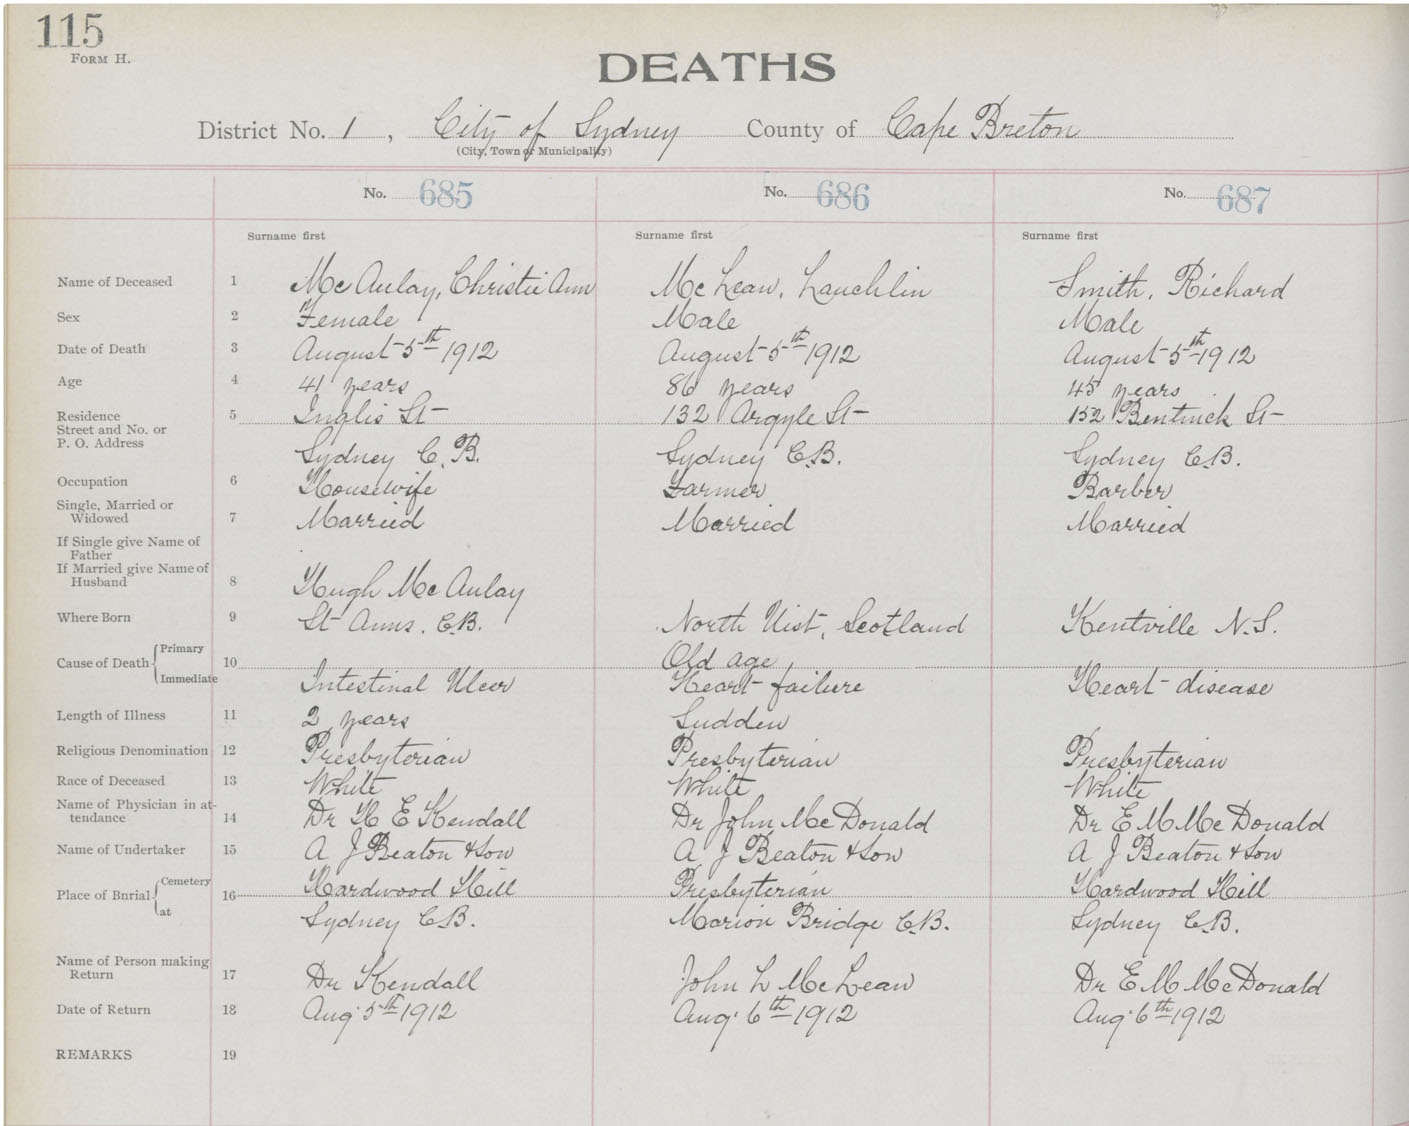 115
FORM H.
DEATHS
District No. 1, City of Sydney County of Cape Breton
(City, Town or Municipality)
No. 685 No. 686 No. 687
Surname first Surname first Surname first
Name of Deceased 1 Mc Aulay, Christie Ann Mc Lean, Lauchlin Smith, Richard
Sex 2 Female Male Male
Date of Death 3 August 5th 1912 August 5th 1912 August 5th 1912
Age 4 41 years 86 years 45 years
Residence 5 Inglis St 132 Argyle St 152 Bentinck St
Street and No. or
P. O. Address Sydney C.B. Sydney C.B. Sydney C.B.
Occupation 6 Housewife Farmer Barber
Single, Married or
Widowed 7 Married Married Married
If Single give Name of
Father
If Married give Name of
Husband 8 Hugh Mc Aulay
Where Born 9 St Anns. C.B. North Uist, Scotland Kentville N.S.
Cause of Death Primary 10 Old age
Immediate Intestinal Ulcer Heart failure Heart disease
Length of Illness 11 2 years Sudden
Religious Denomination 12 Presbyterian Presbyterian Presbyterian
Race of Deceased 13 White White White
Name of Physician in at-
tendance 14 Dr H E Kendall Dr John Mc Donald Dr E M Mc Donald
Name of Undertaker 15 A J Beaton & Son A J Beaton & Son A J Beaton & Son
Place of Bnrial Cemetery 16 Hardwood Hill Presbyterian Hardwood Hill
at Sydney C.B. Marion Bridge C.B. Sydney C.B.
Name of Person making
Return 17 Dr Kendall John L McLean Dr E M Mc Donald
Date of Return 18 Aug. 5th 1912 Aug. 6th 1912 Aug. 6th 1912
REMARKS 19